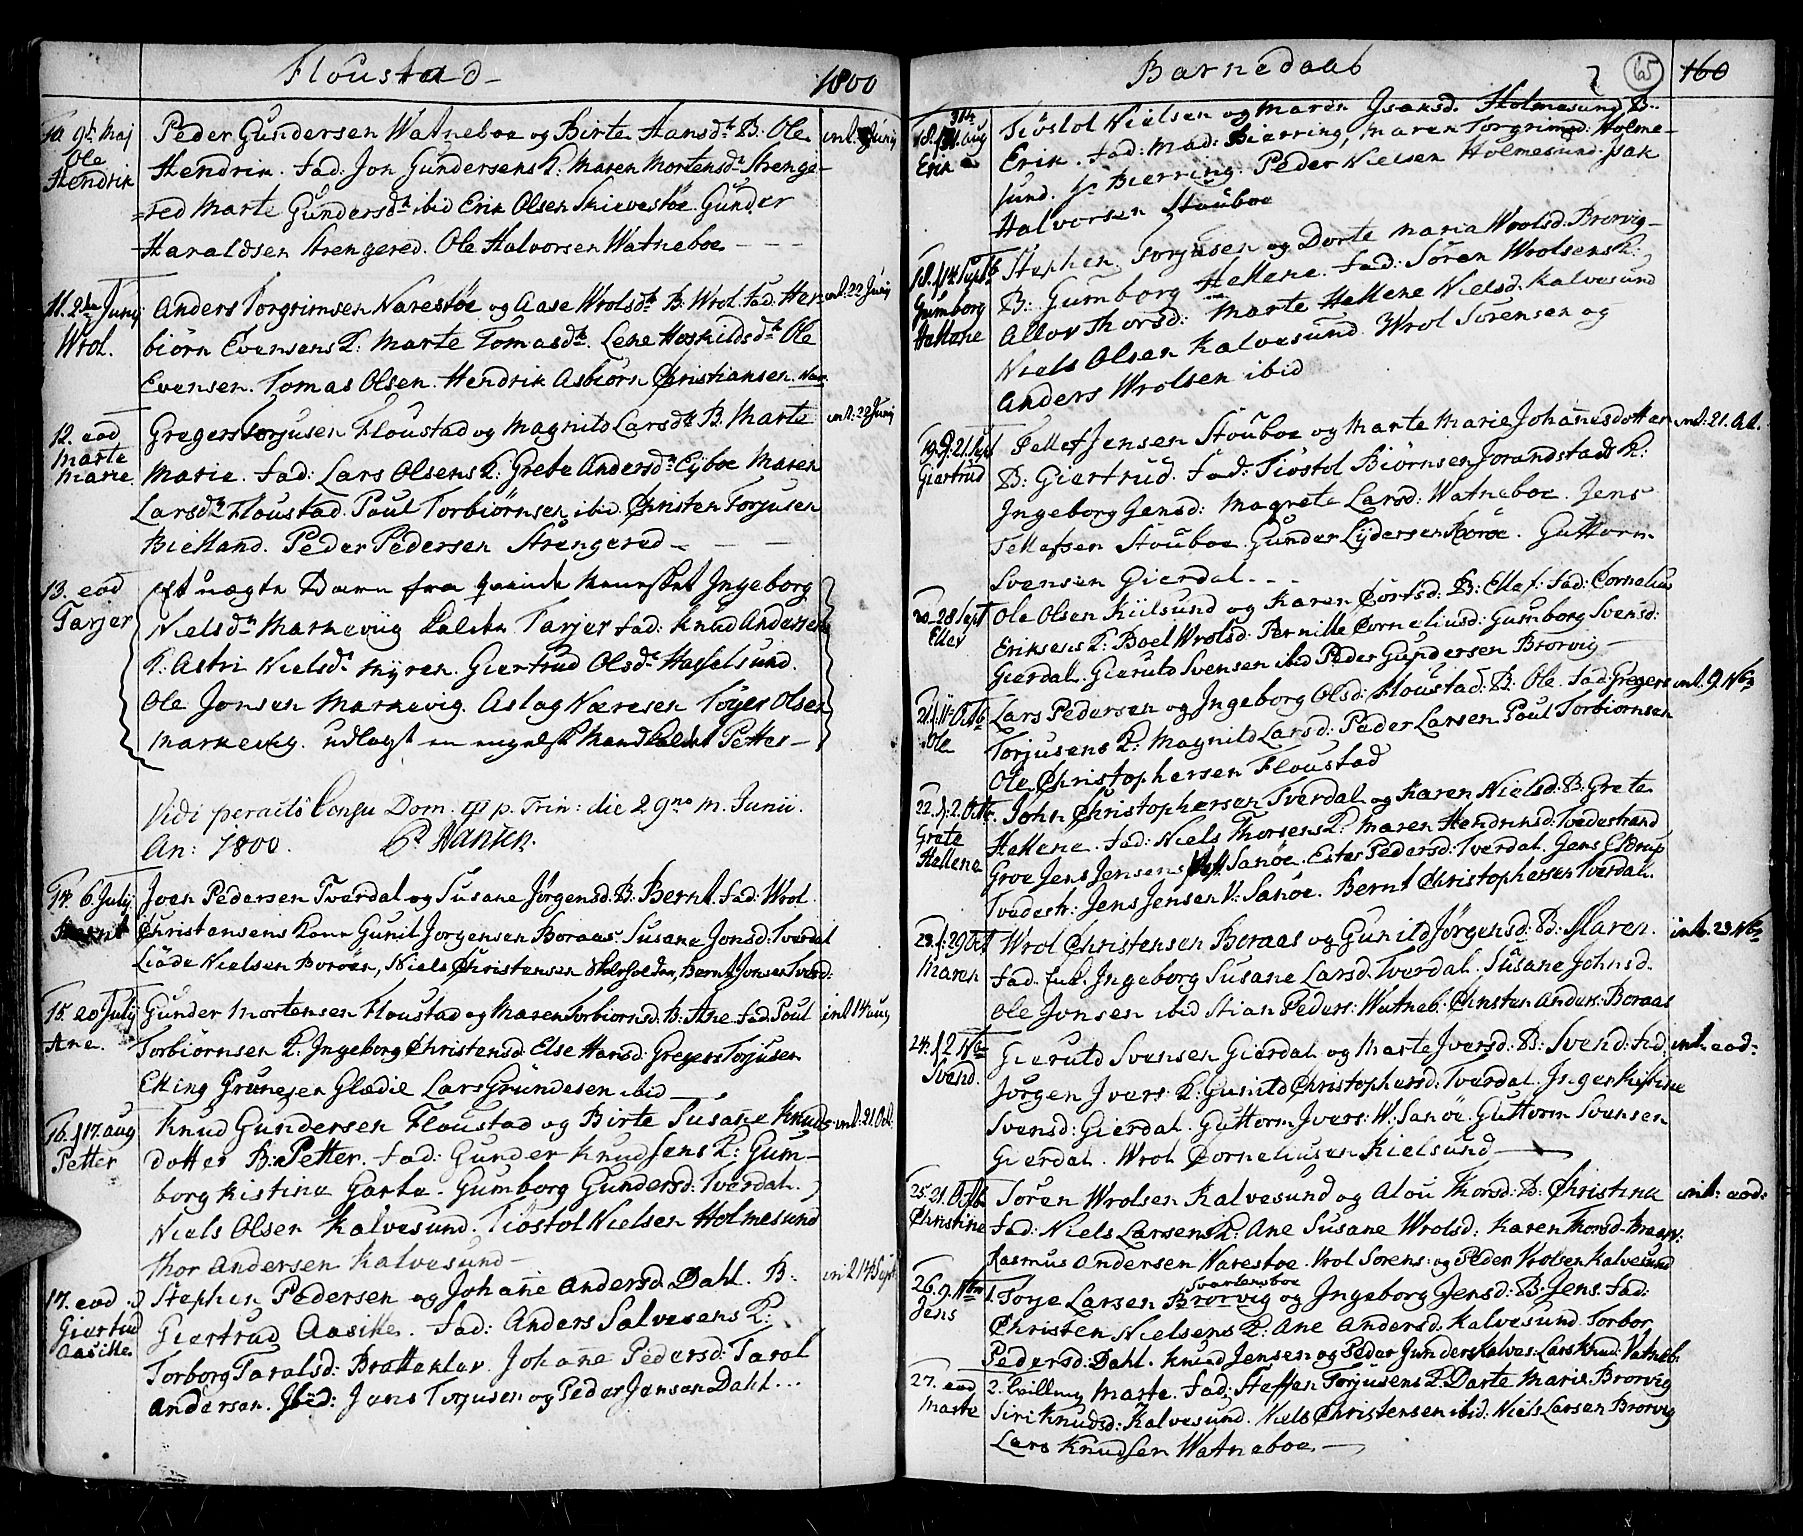 Floustad
1800
10. 9de Maj
Ole
Hendrik
Peder Gundersen Watneboe og Birte Hansdr B: Ole
Hendrik. Fad: Jon Gundersens K: Maren Mortensdr Strenge-
=red Marte Gundersdr ibid Erik Olsen Skievestöe Gunder
Haraldsen Strengered. Ole Halvorsen Watneboe
int. Junij
11. 2den Junij
Wrol.
Anders Torgrimsen Narestöe og Aase Wrolsdr B: Wrol. Fad: Hen
biörn Evensens K: Marte Tomasdr. Lene Hoskildsdr Ole
Evensen. Tomas Olsen. Hendrik Asbiörn Christiansen. Nar.
int. 22 Junij
12. eod
Marte
Marie.
Gregers Torjusen Floustad og Magnild Larsdr B. Marte
Marie. Fad: Lars Olsens K: Grete Andersdr Eÿboe Maren
Larsdr Floustad. Paul Torbiörnsen ibid. Christen Torjusen
Bielland. Peder Pedersen Strengered
int: 22 Junij
13. eod
Tarjer
Et uægte Barn fra qvinde kiønnet Ingeborg
Nielsdr Markeviig kaldet Tarjer Fad: Knud Andersens
K: Astri Nielsdr Myren. Giertrud Olsdr Hasselsund.
Ole Jonsen Markevig. Aslag Næresen Töger Olsen
Markevig. udlagt en engelsk Mand kaldet Petter
Vidi peractis Dom. p. Trin: die 29no m. Junii.
An: 1800. P. Hansen.
14. 6 July
Bernt
Joen Pedersen Tverdal og Susane Jørgensd. B: Bernt. Fad: Wrol
Christensens Kone Gunil Jorgensen Boraas. Susane Jonsd: Tverdal
Liöde Nielsen Boröen, Niels Christensen, Bernt Jonsen Tverd:
15. 20 July
Ane.
Gunder Mortensen Floustad og Maren Torbiornsd. B: Ane Fad: Poul
Torbiörnsen K: Ingeborg Christensd. Else Hansd. Gregers Torjusen
Elling Grunesen Glædie Lars Gründesen ibid
int 14 aug
16. f 17. aug
Petter
Knud Gundersen Floustad og Birte Susane Knuds-
dotter B: Petter. Fad: Gunder Knudsens K: Gum-
borg Kistina Garta. Gumborg Gundersd: Tverdal.
Niels Olsen Kalvesund. Tiöstol Nielsen Holmesund
Thor Andersen Kalvesund
int. 21. Oct.
17. eod
Giertrud
Aasille
Stephen Pedersen og Johane Andersd. Dahl. B:
Giertrud Aasille. Fad: Anders Salvesens K:
Torborg Taralsd: Brattekler. Johane Pedersd: Tarol
Andersen. Ibid: Jens Torjusen og Peder Jensen Dahl...
int 14 Sept
Barnedaab
65
160
18. aug
Erik
Tiöstol Nielsen og Maren Isaksd. Holmesund B.
Erik. Fad: Mad: Bierring, Maren Torgrimsd: Holme-
sund. Hr Bierring. Peder Nielsen Holmesund. Isak
Halvorsen Stouboe
18. f 14 Septb
Gumborg
Hellene
Stephen Torjusen og Dorte Maria Wrolsd. Brorvig
B: Gumborg Hellene. Fad: Sören Wrolsens K:
Allov Thorsd: Marte Hellene Nielsd. Kalvesund
Niels Olsen Kalvesund. Wrol Sorensen og
Anders Wrolsen ibid
19. d. 21. Sept
Giertrud
Tellef Jensen Stouboe og Marte Marie Johanesdotter
B: Giertrud. Fad: Tiöstol Biörnsen Jorandstads K:
Ingeborg Jensd: Magrete Larsd: Watneboe. Jens
Tellefsen Stouboe. Gunder Lydersen Boröe. Guttorm
Svensen Gierdal...
int: 21. Oct.
20. 28 Sept
Ellev
Ole Olsen Kiilsund og Karen Torsd: B: Ellef: Fad: Cornelius
Eriksens K: Boel Wrolsd. Pernille Corneliusd: Gumborg Svensd:
Gierdal. Gieruld Svensen ibid Peder Gundersen Brorvig
21. f. 11. Octb
Ole
Lars Pedersen og Ingeborg Olsd: Floustad. B. Ole. Fad: Gregers
Torjusens K: Magnild Larsd: Peder Larsen Poul Torbiornsen
Ole Christophersen Floustad
int. 9. Nbr
22. f. 2. Octbr.
Grete
Hellene
John Christophersen Tverdal og Karen Nielsd: B: Grete
Hellene. Fad: Niels Thorsens K: Maren Hendriksd: Tvedestrand
Groe Jens Jensens Sanöe. Ester Pedersd: Tverdal. Jens Eltrup
Tvedestr: Jens Jensen V: Sanöe. Bernt Christophersen Tverdal.
23. f. 29 Oct
Maren
Wrol Christensen Boraas og Gunild Jörgensd: B: Maren.
Fad. Ingeborg Susane Larsd. Tverdal. Susane Johnsd.
Ole Jonsen ibid Stian Peders: Watneb. Christen Anders: Boraas
int. 23. Nbr
24. f 2 Nbr
Svend.
Gieruld Svensen Gierdal og Marte Iversd: B: Svend: Fad:
Jørgen Ivers: K: Gunild Christophersd: Tverdal. Inger Kistine
Svensd: Gierdal. Guttorm Ivers: V: Sanöe. Guttorm Svensen
Gierdal. Wrol Corneliusen Kielsund
int: eod:
25. 21. Octb
Christine
Sören Wrolsen Kalvesund og Alou Thorsd: B: Christina
Fad: Niels Larsens K: Ane Susane Wrolsd: Karen Thorsd: Braas:
Rasmus Andersen Narestoe. Wrol Sörens: og Peder Wrolsen Kalvesund
int: eod:
26. 9. Nbr
Jens
Svartensboe
1. Torje Larsen Brorvig og Ingeborg Jensd: B: Jens. Fad:
Christen Nielsens K: Ane Andersd. Kalvesund. Torbor
Pedersd: Dahl. Knud Jensen og Peder Gunders: Kalves: Lars Knud: Vatneb.
27. eod
Marte
2. Tvilling Marte. Fad: Steffen Torjusens K. Darte Marie. Brorvig
Siri Knudsd: Kalvesund. Niels Christensen ibid: Niels Larsen Brorvig
Lars Knudsen Watneboe